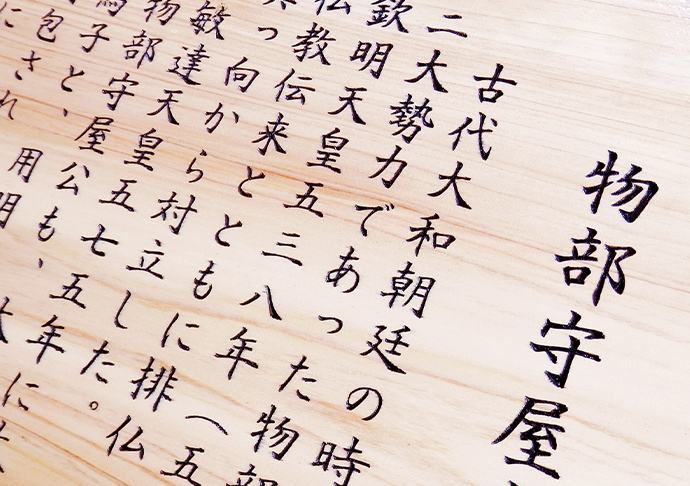 物部守屋
古代大和朝廷の時
二大勢力であった物部
欽明天皇五三八年（五
仏教伝来とともに排仏
っ向から対立した。
敏達天皇五七五年に
物部守屋公も、
馬子と、用明
包され
に